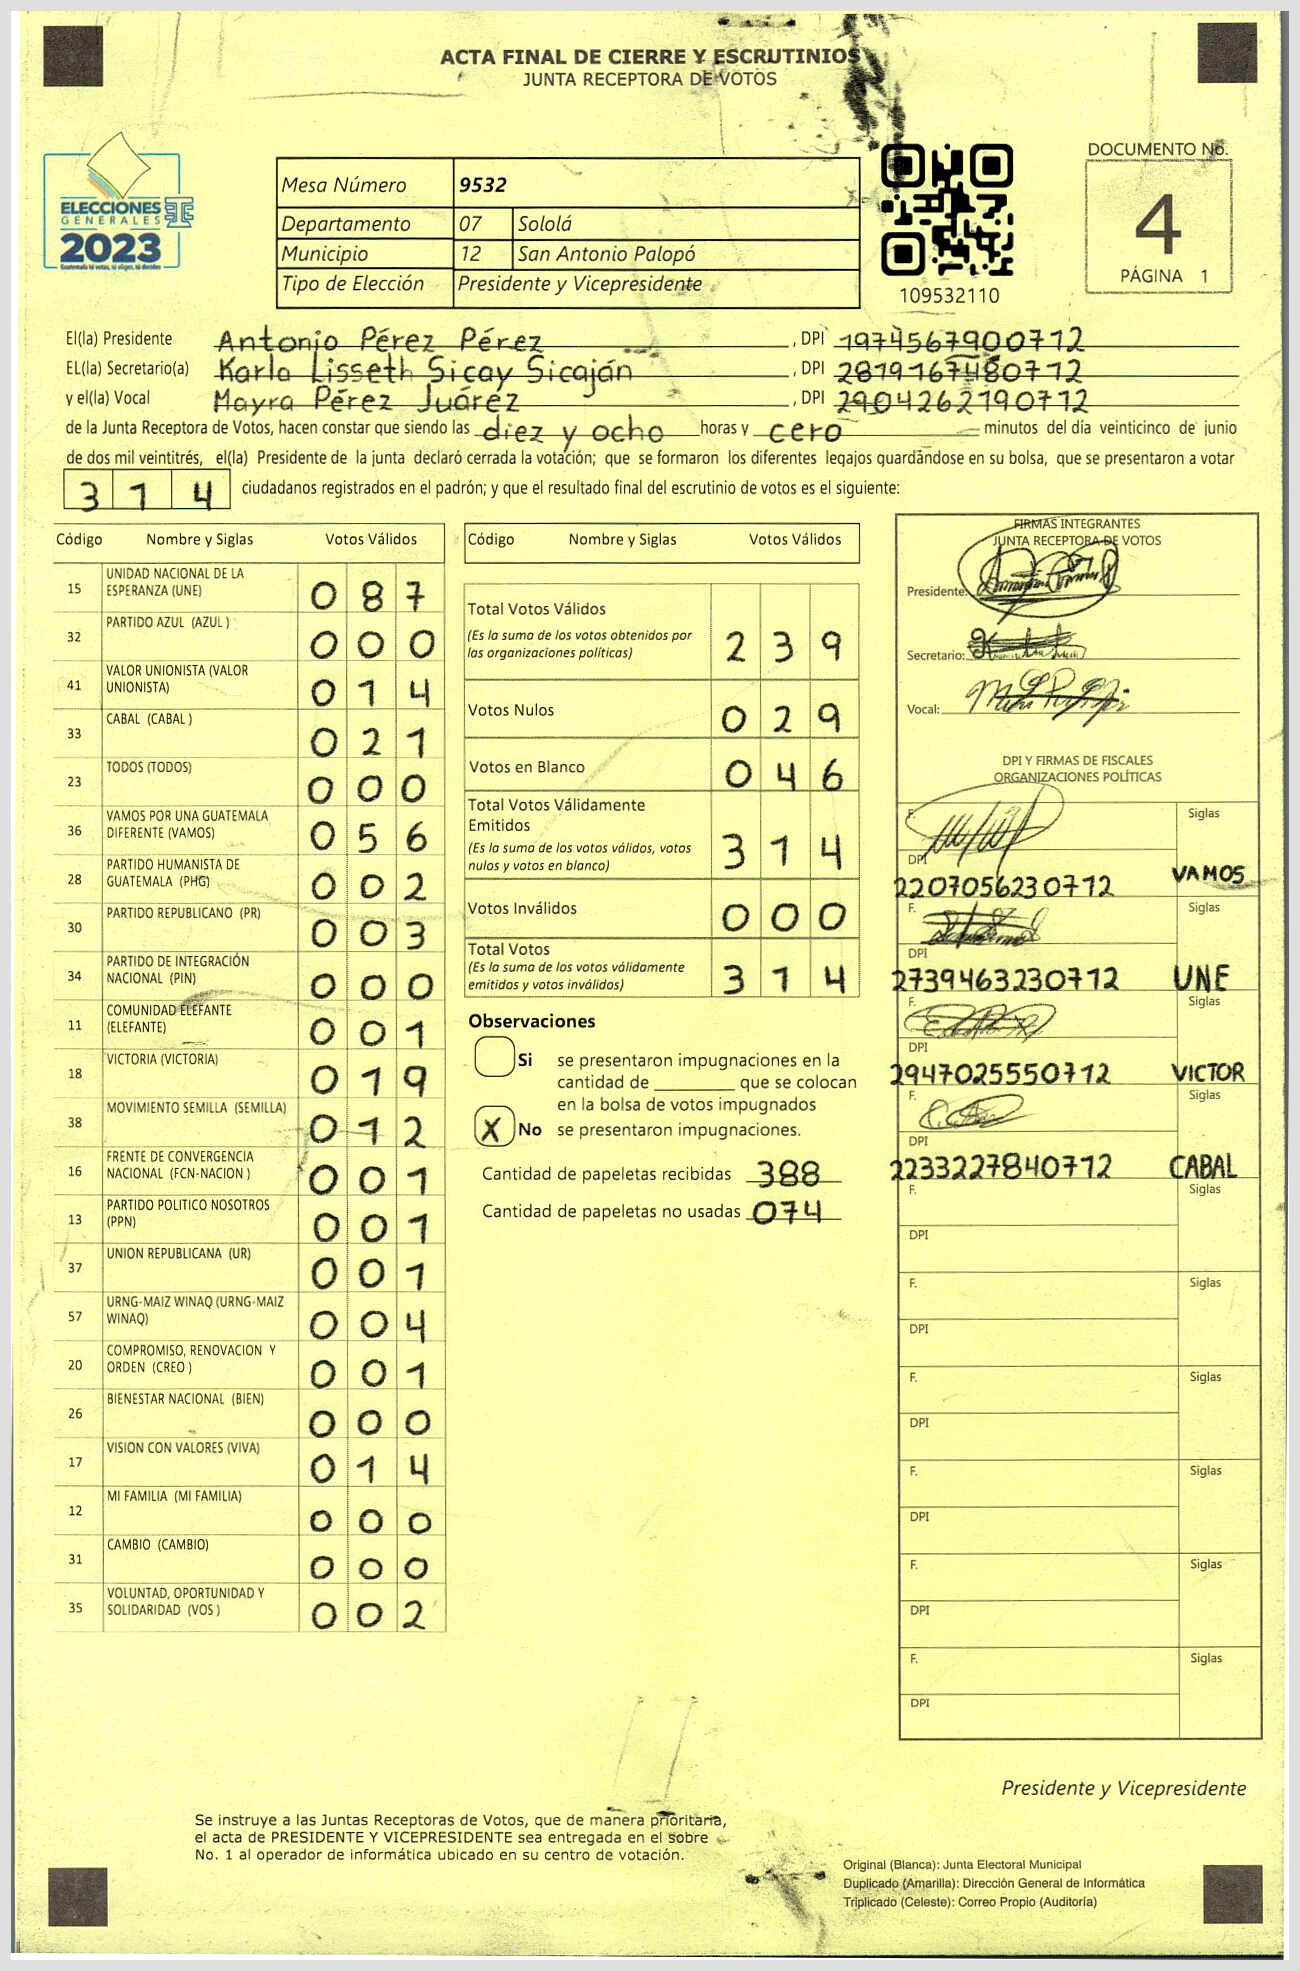 ACTA FINAL DE CIERRE Y ESCRUTINIOS
JUNTA RECEPTORA DE VOTOS
ELECCIONES
GENERALES
2023
Guatemala tú votas, tú eliges, tú decides
Mesa Número 9532
Departamento 07 Sololá
Municipio 12 San Antonio Palopó
Tipo de Elección Presidente y Vicepresidente
109532110
DOCUMENTO No.
4
PÁGINA 1
El(la) Presidente Antonio Pérez Pérez , DPI 1974567900712
EL(la) Secretario(a) Karla Lisseth Sicay Sicaján , DPI 2819167480712
y el(la) Vocal Mayra Pérez Juárez , DPI 2904262190712
de la Junta Receptora de Votos, hacen constar que siendo las diez y ocho horas y cero minutos del día veinticinco de junio
de dos mil veintitrés, el(la) Presidente de la junta declaró cerrada la votación; que se formaron los diferentes legajos guardándose en su bolsa, que se presentaron a votar
314 ciudadanos registrados en el padrón; y que el resultado final del escrutinio de votos es el siguiente:
Código Nombre y Siglas Votos Válidos
15 UNIDAD NACIONAL DE LA
ESPERANZA (UNE) 087
32 PARTIDO AZUL (AZUL ) 000
41 VALOR UNIONISTA (VALOR
UNIONISTA) 014
33 CABAL (CABAL ) 021
23 TODOS (TODOS) 000
36 VAMOS POR UNA GUATEMALA
DIFERENTE (VAMOS) 056
28 PARTIDO HUMANISTA DE
GUATEMALA (PHG) 002
30 PARTIDO REPUBLICANO (PR) 003
34 PARTIDO DE INTEGRACIÓN
NACIONAL (PIN) 000
11 COMUNIDAD ELEFANTE
(ELEFANTE) 001
18 VICTORIA (VICTORIA) 019
38 MOVIMIENTO SEMILLA (SEMILLA) 012
16 FRENTE DE CONVERGENCIA
NACIONAL (FCN-NACION ) 001
13 PARTIDO POLITICO NOSOTROS
(PPN) 001
37 UNION REPUBLICANA (UR) 001
57 URNG-MAIZ WINAQ (URNG-MAIZ
WINAQ) 004
20 COMPROMISO, RENOVACION Y
ORDEN (CREO ) 001
26 BIENESTAR NACIONAL (BIEN) 000
17 VISION CON VALORES (VIVA) 014
12 MI FAMILIA (MI FAMILIA) 000
31 CAMBIO (CAMBIO) 000
35 VOLUNTAD, OPORTUNIDAD Y
SOLIDARIDAD (VOS ) 002
Código Nombre y Siglas Votos Válidos
Total Votos Válidos
(Es la suma de los votos obtenidos por
las organizaciones políticas) 239
Votos Nulos 029
Votos en Blanco 046
Total Votos Válidamente
Emitidos
(Es la suma de los votos válidos, votos
nulos y votos en blanco) 314
Votos Inválidos 000
Total Votos
(Es la suma de los votos válidamente
emitidos y votos inválidos) 314
Observaciones
Si se presentaron impugnaciones en la
cantidad de ________ que se colocan
en la bolsa de votos impugnados
X No se presentaron impugnaciones.
Cantidad de papeletas recibidas 388
Cantidad de papeletas no usadas 074
FIRMAS INTEGRANTES
JUNTA RECEPTORA DE VOTOS
Presidente:
Secretario:
Vocal:
DPI Y FIRMAS DE FISCALES
ORGANIZACIONES POLÍTICAS
F. Siglas
DPI
2207056230712 VAMOS
F. Siglas
DPI
2739463230712 UNE
F. Siglas
DPI
2947025550712 VICTOR
F. Siglas
DPI
2233227840712 CABAL
F. Siglas
DPI
F. Siglas
DPI
F. Siglas
DPI
F. Siglas
DPI
F. Siglas
DPI
F. Siglas
DPI
Presidente y Vicepresidente
Se instruye a las Juntas Receptoras de Votos, que de manera prioritaria,
el acta de PRESIDENTE Y VICEPRESIDENTE sea entregada en el sobre
No. 1 al operador de informática ubicado en su centro de votación.
Original (Blanca): Junta Electoral Municipal
Duplicado (Amarilla): Dirección General de Informática
Triplicado (Celeste): Correo Propio (Auditoría)